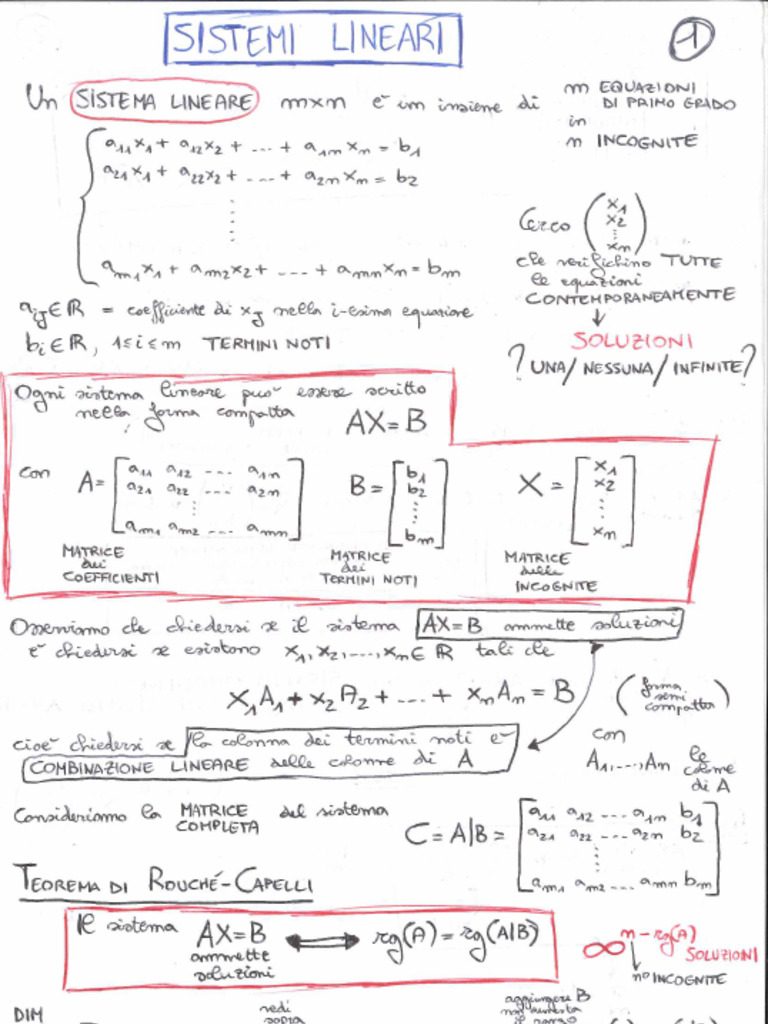 SISTEMI LINEARI
1
Un SISTEMA LINEARE m×n è un insieme di m EQUAZIONI DI PRIMO GRADO in n INCOGNITE
a11x1 + a12x2 + ... + a1nxn = b1
a21x1 + a22x2 + ... + a2nxn = b2
⋮
am1x1 + am2x2 + ... + amnxn = bm
Cerco (x1 x2 ⋮ xn)
che verifichino TUTTE
le equazioni
CONTEMPORANEAMENTE
↓
SOLUZIONI
? UNA/NESSUNA/INFINITE?
aij ∈ ℝ = coefficiente di xj nella i-esima equazione
bi ∈ ℝ, 1≤i≤m TERMINI NOTI
Ogni sistema lineare può essere scritto
nella forma compatta AX=B
con A = [a11 a12 ... a1n
a21 a22 ... a2n
⋮
am1 am2 ... amn]
MATRICE
dei
COEFFICIENTI
B = [b1 b2 ⋮ bm]
MATRICE
dei
TERMINI NOTI
X = [x1 x2 ⋮ xn]
MATRICE
delle
INCOGNITE
Osserviamo che chiedersi se il sistema AX=B ammette soluzioni
è chiedersi se esistono x1, x2, ..., xn ∈ ℝ tali che
x1A1 + x2A2 + ... + xnAn = B
(forma
semi
compatta)
con
A1, ..., An le
colonne
di A
cioè chiedersi se la colonna dei termini noti è
COMBINAZIONE LINEARE delle colonne di A
Consideriamo la MATRICE COMPLETA del sistema
C = A|B = [a11 a12 ... a1n b1
a21 a22 ... a2n b2
⋮
am1 am2 ... amn bm]
TEOREMA DI ROUCHÉ-CAPELLI
Il sistema AX=B ammette soluzioni ⟺ rg(A) = rg(A|B)
∞^(n-rg(A)) SOLUZIONI
n° INCOGNITE
DIM
vedi
sopra
aggiungere B
non aumenta
il rango